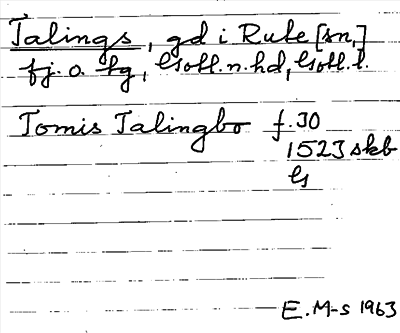 Talings, gd i Rute [sn,]
fj. o. hg, Gotl. n. hd, Gotl. l.
Tomis Talingbo f. 30
1523 skb
G
E. M-s 1963